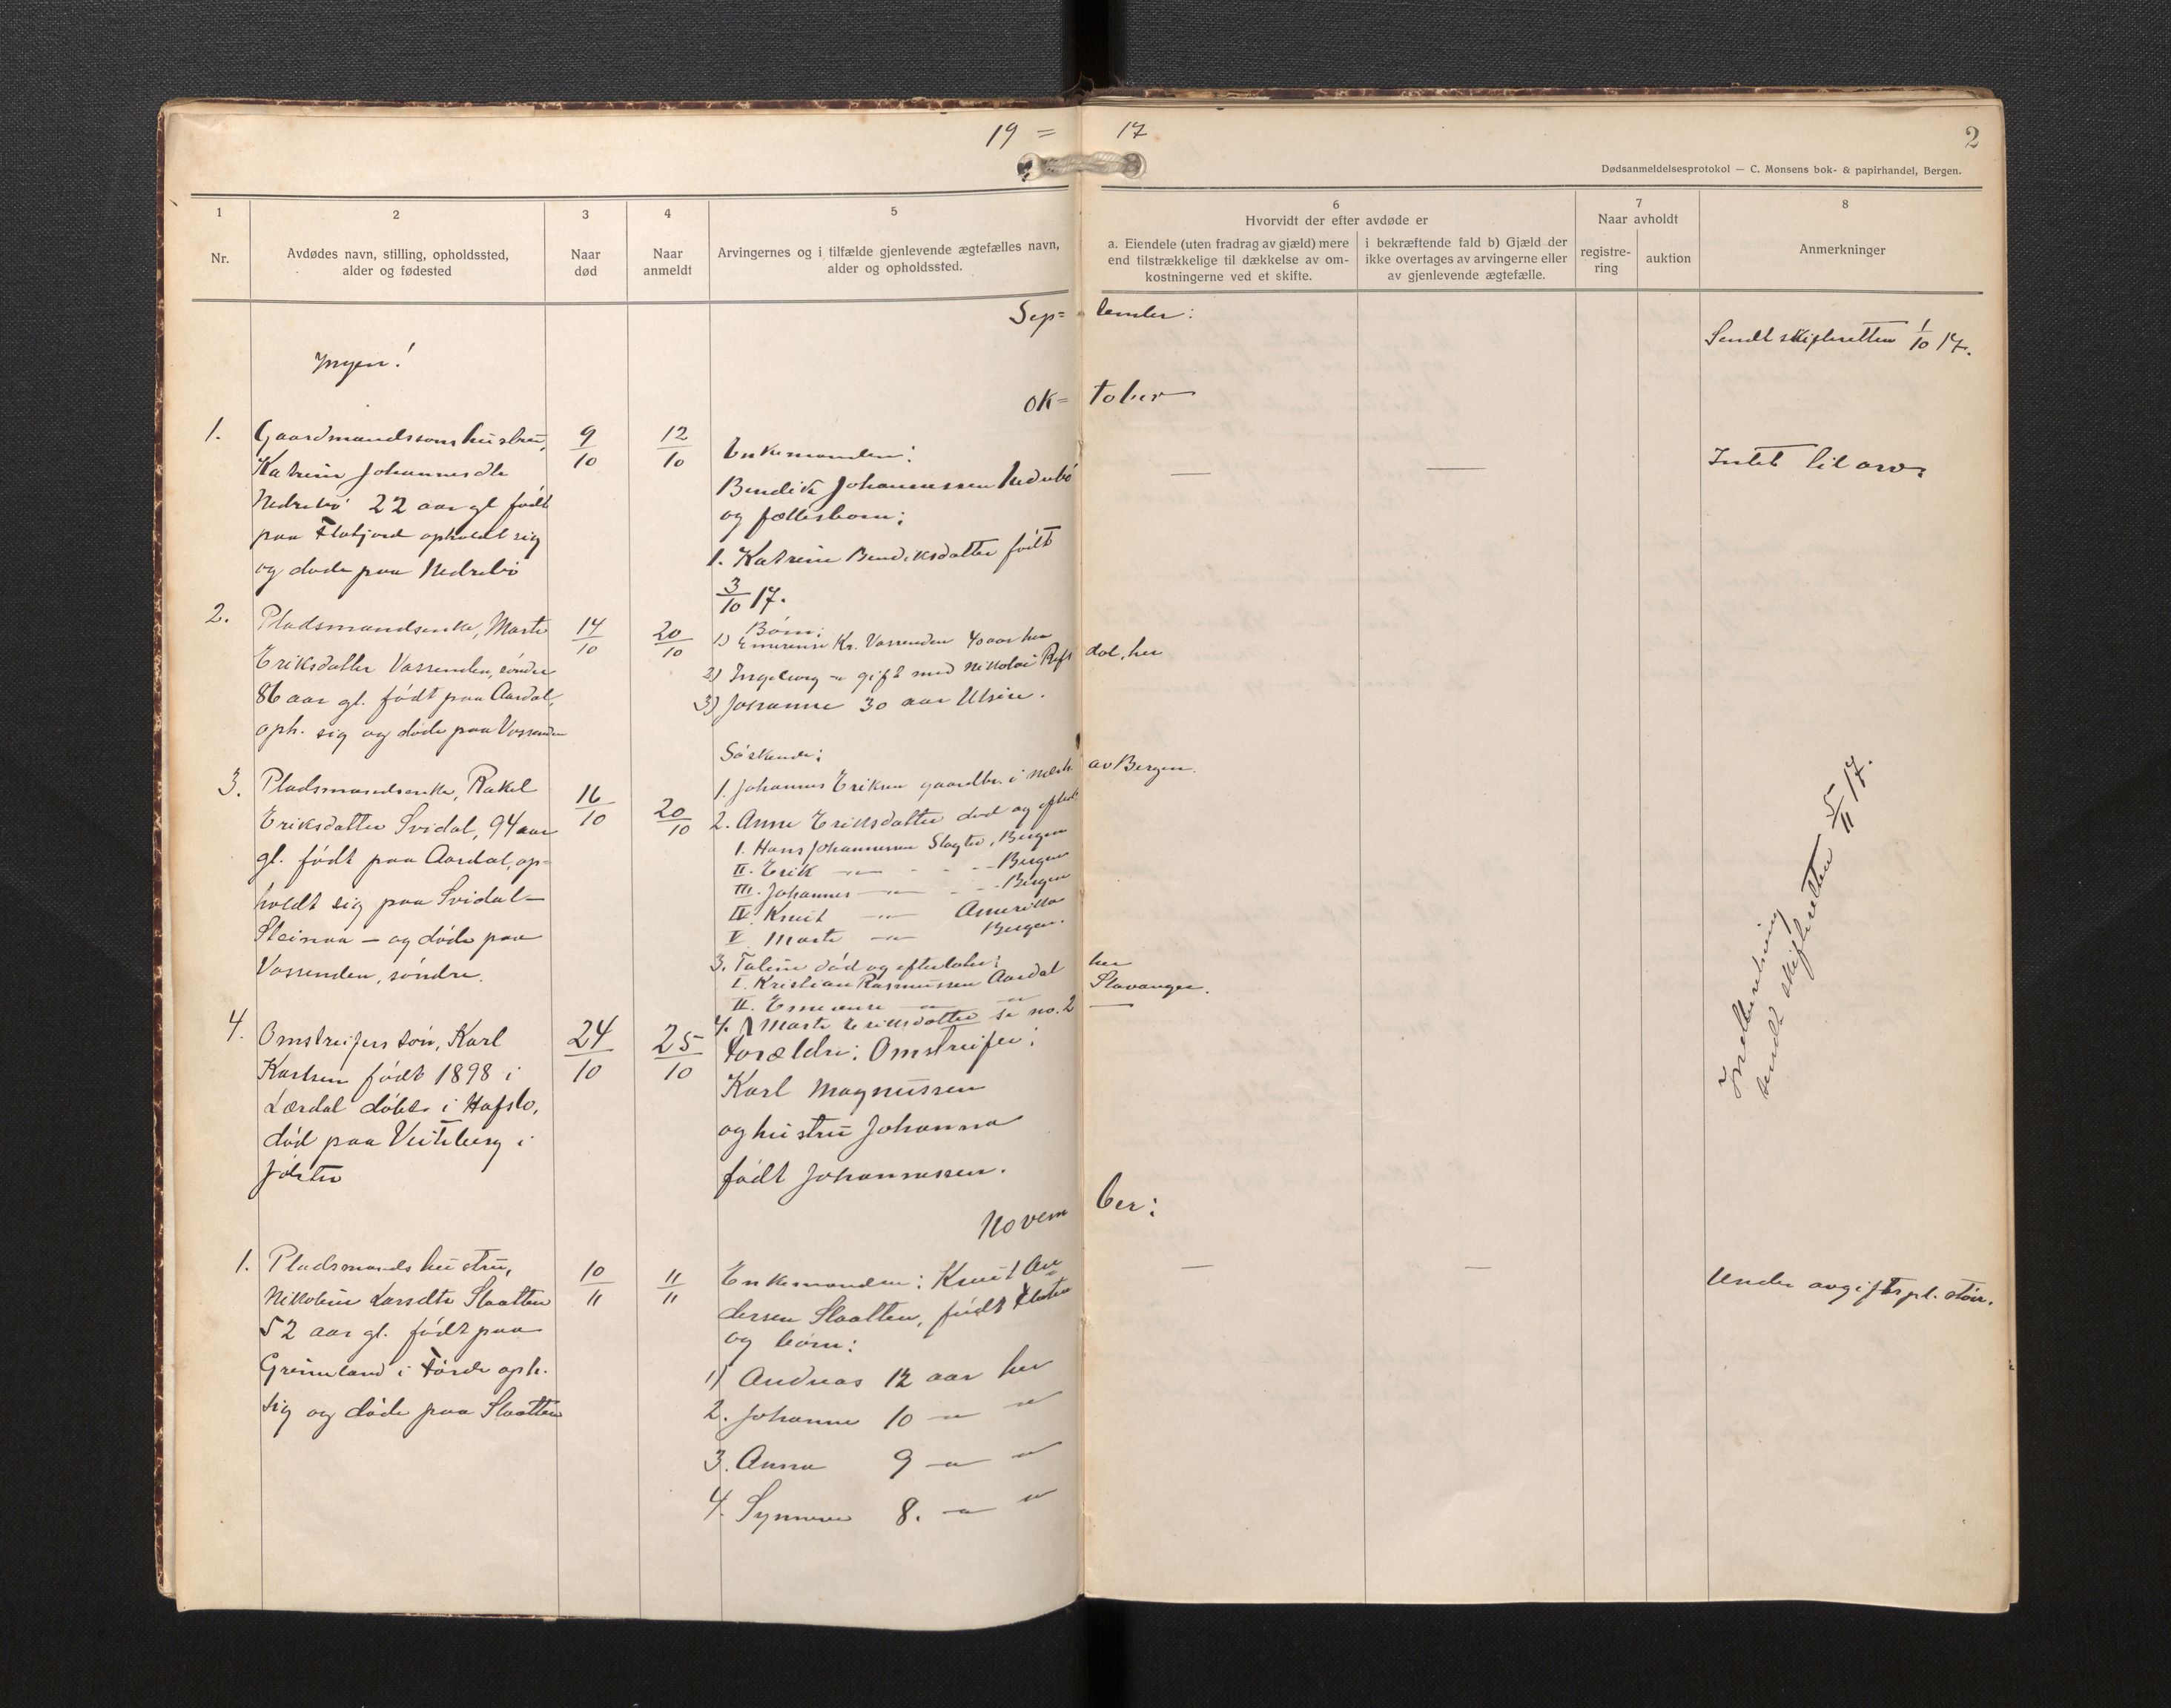 19 = 17
2
Dødsanmeldelsesprotokol — C. Monsens bok- & papirhandel, Bergen.
1
Nr.
2
Avdødes navn, stilling, opholdssted,
alder og fødested
3
Naar
død
4
Naar
anmeldt
5
Arvingernes og i tilfælde gjenlevende ægtefælles navn,
alder og opholdssted.
6
Hvorvidt der efter avdøde er
a. Eiendele (uten fradrag av gjæld) mere
end tilstrækkelige til dækkelse av om-
kostningerne ved et skifte.
i bekræftende fald b) Gjæld der
ikke overtages av arvingerne eller
av gjenlevende ægtefælle.
7
Naar avholdt
registre-
ring
auktion
8
Anmerkninger
Sep= tember:
Sendt skifteretten 1/10 17.
Ingen!
Ok= tober
1.
Gaardmandssons hustru,
Katrine Johannesdtr
Nedrebö 22 aar gl født
paa Flatjord opholdt sig
og døde paa Nedrebö
9/10
12/10
Enkemanden:
Bendik Johannessen Nedrebö
og fællesbarn:
1. Katrine Bendiksdatter født
3/10 17.
—
—
Intet til arv.
2.
Pladsmandsenke, Marte
Eriksdatter Vassenden, söndre
86 aar gl. født paa Aardal,
oph. sig og døde paa Vassenden
14/10
20/10
Börn:
1) Emerense Kr. Vassenden 40 aar her
2) Ingeborg — " gift med Nikolai Refsdal, her
3) Johanne 30 aar
3.
Pladsmandsenke, Rakel
Eriksdatter Svidal, 94 aar
gl. født paa Aardal, op=
holdt sig paa Svidal—
Steinaa — og døde paa
Vassenden, söndre.
16/10
20/10
Söskende:
1. Johannes Eriksen gaardbr. i nærh. av Bergen.
2. Anne Eriksdatter død og efterl.
I. Hans Johannessen Slagter, Bergen
II. Erik — " — - - Bergen
III. Johannes — " — - - Bergen
IV. Knut — " — Amerika
V. Marte — " — Bergen.
3. Taline død og efterlater:
I. Kristian Rasmussen Aardal her
II. Emerense — " — " Stavanger.
4. Marte Eriksdatter se no. 2 —
Indberetning
sendt skifteretten 5/11 17.
4.
Omstreifers sön, Karl
Karlsen født 1898 i
Lærdal döbt i Hafslo,
död paa Veiteberg i
Jölster
24/10
25/10
Forældre: Omstreifer:
Karl Magnussen
og hustru Johanna
født Johannessen.
Novem ber:
1.
Pladsmands hustru,
Nikoline Larsdtr Slaatten
52 aar gl. født paa
Grimeland i Förde oph.
sig og døde paa Slaatten
10/11
11/11
Enkemanden: Knut An=
dersen Slaatten, født
og börn:
1) Andreas 12 aar her
2. Johanne 10 — " — "
3. Anna 9 — " — "
4. Synneve 8. — " — "
—
—
Under avgiftspl. stör.